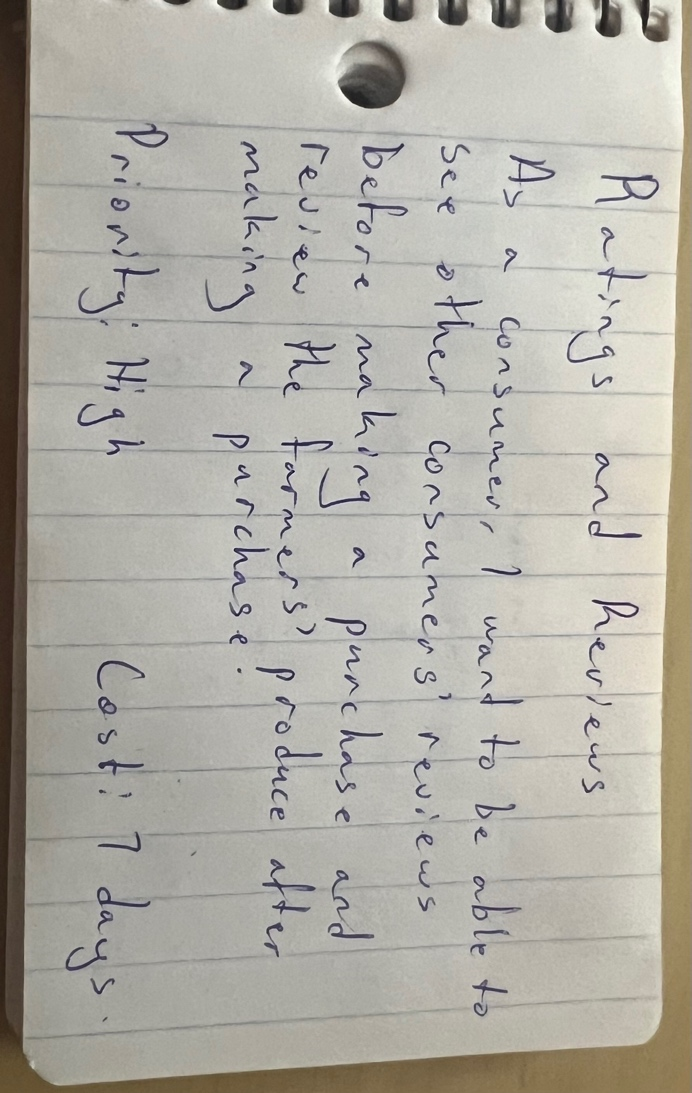 Ratings and Reviews
As a consumer, I want to be able to
see other consumers' reviews
before making a purchase and
review the farmers' produce after
making a purchase.
Priority: High Cost: 7 days.